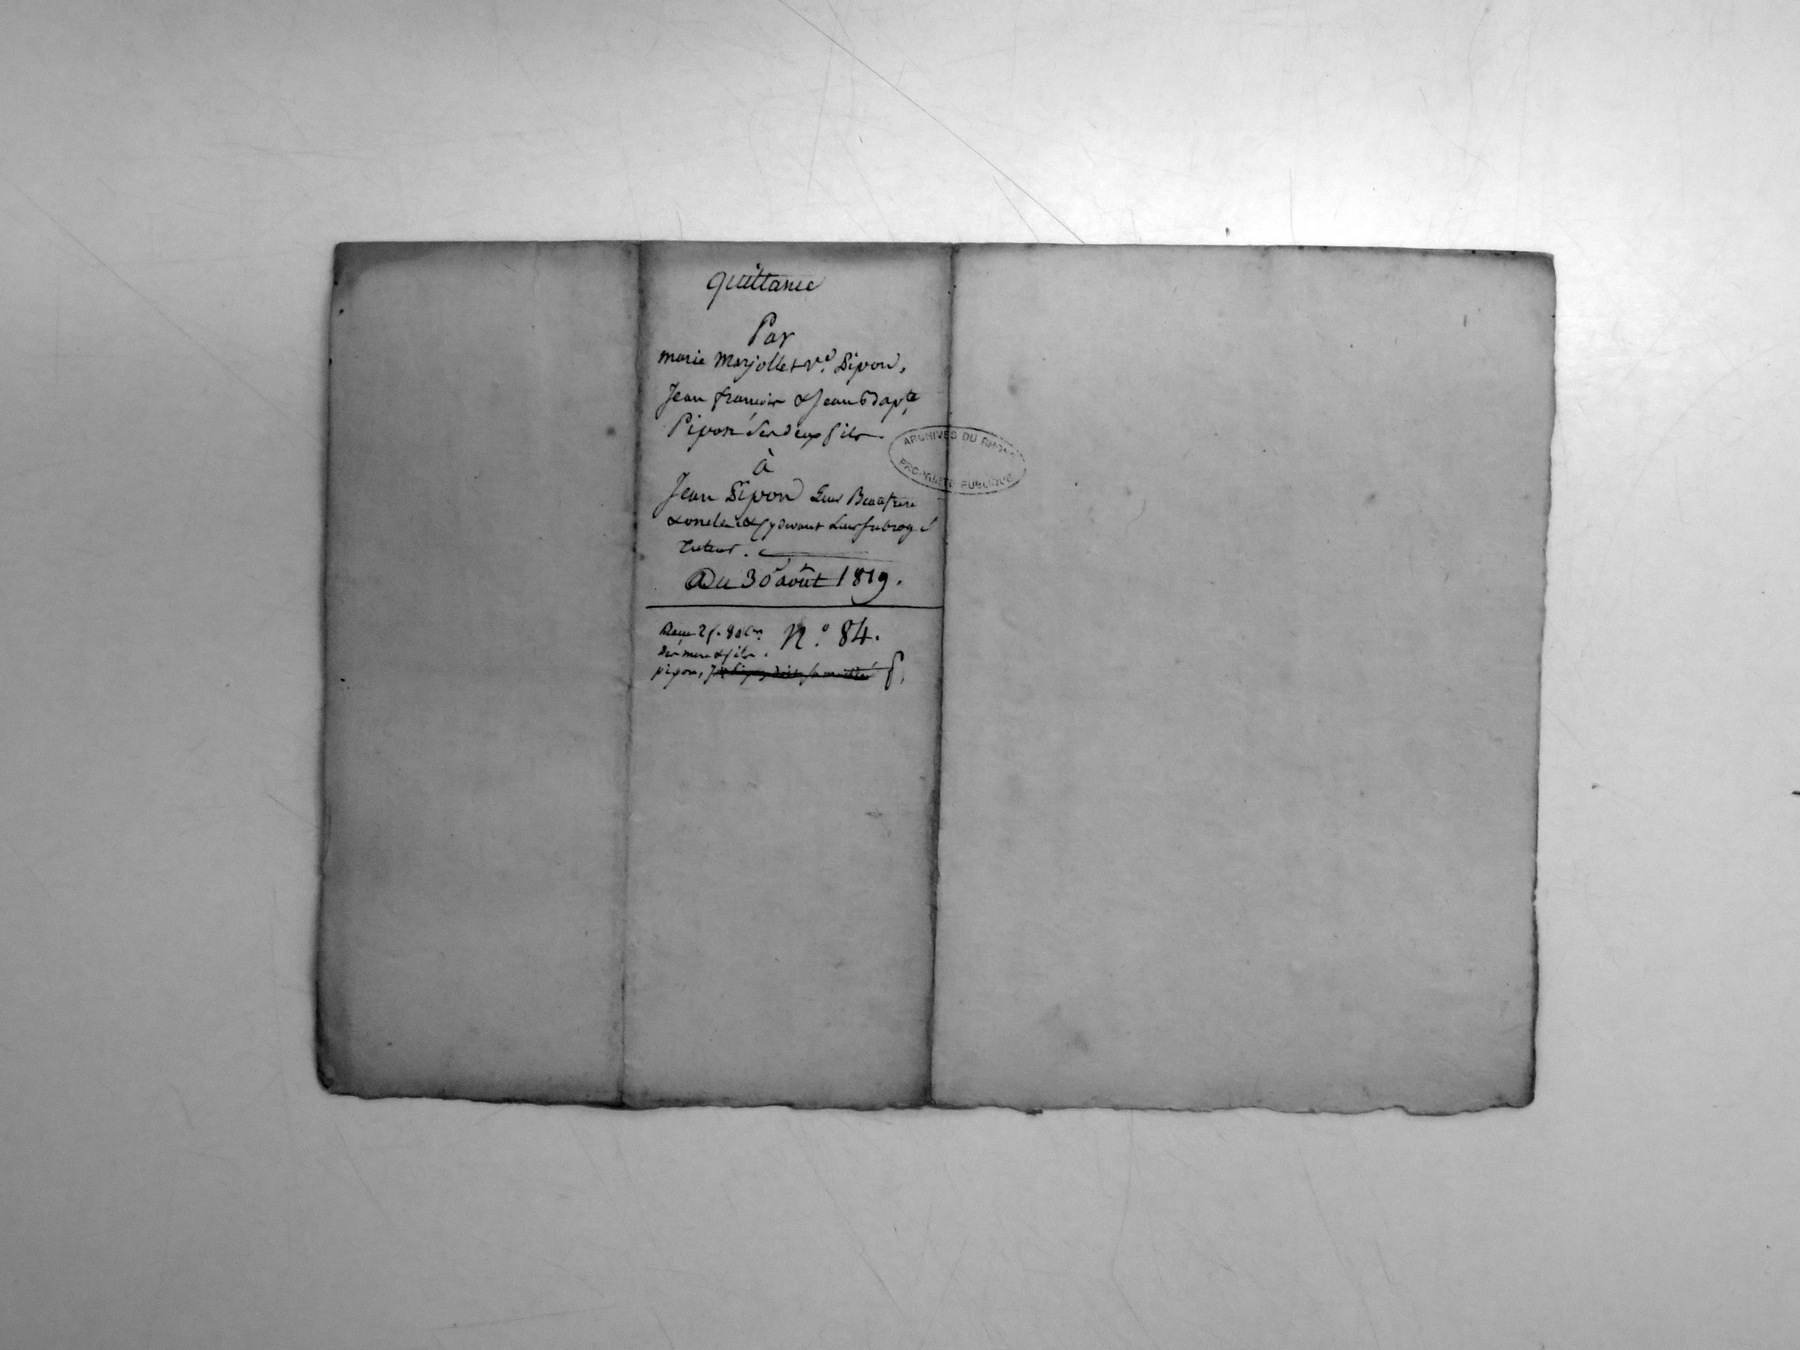 quittance
Par
marie Marjollet v.e Pipon,
Jean francois & Jean Bapte
Pipon ses deux fils.
à
Jean Pipon Leur Beaufrere
& oncle & cydevant Leur subrogé
Tuteur.
Du 30 août 1819.
N.o 84.
des mere & fils
pipon,
ARCHIVES DU RHONE
PROPRIÉTÉ PUBLIQUE